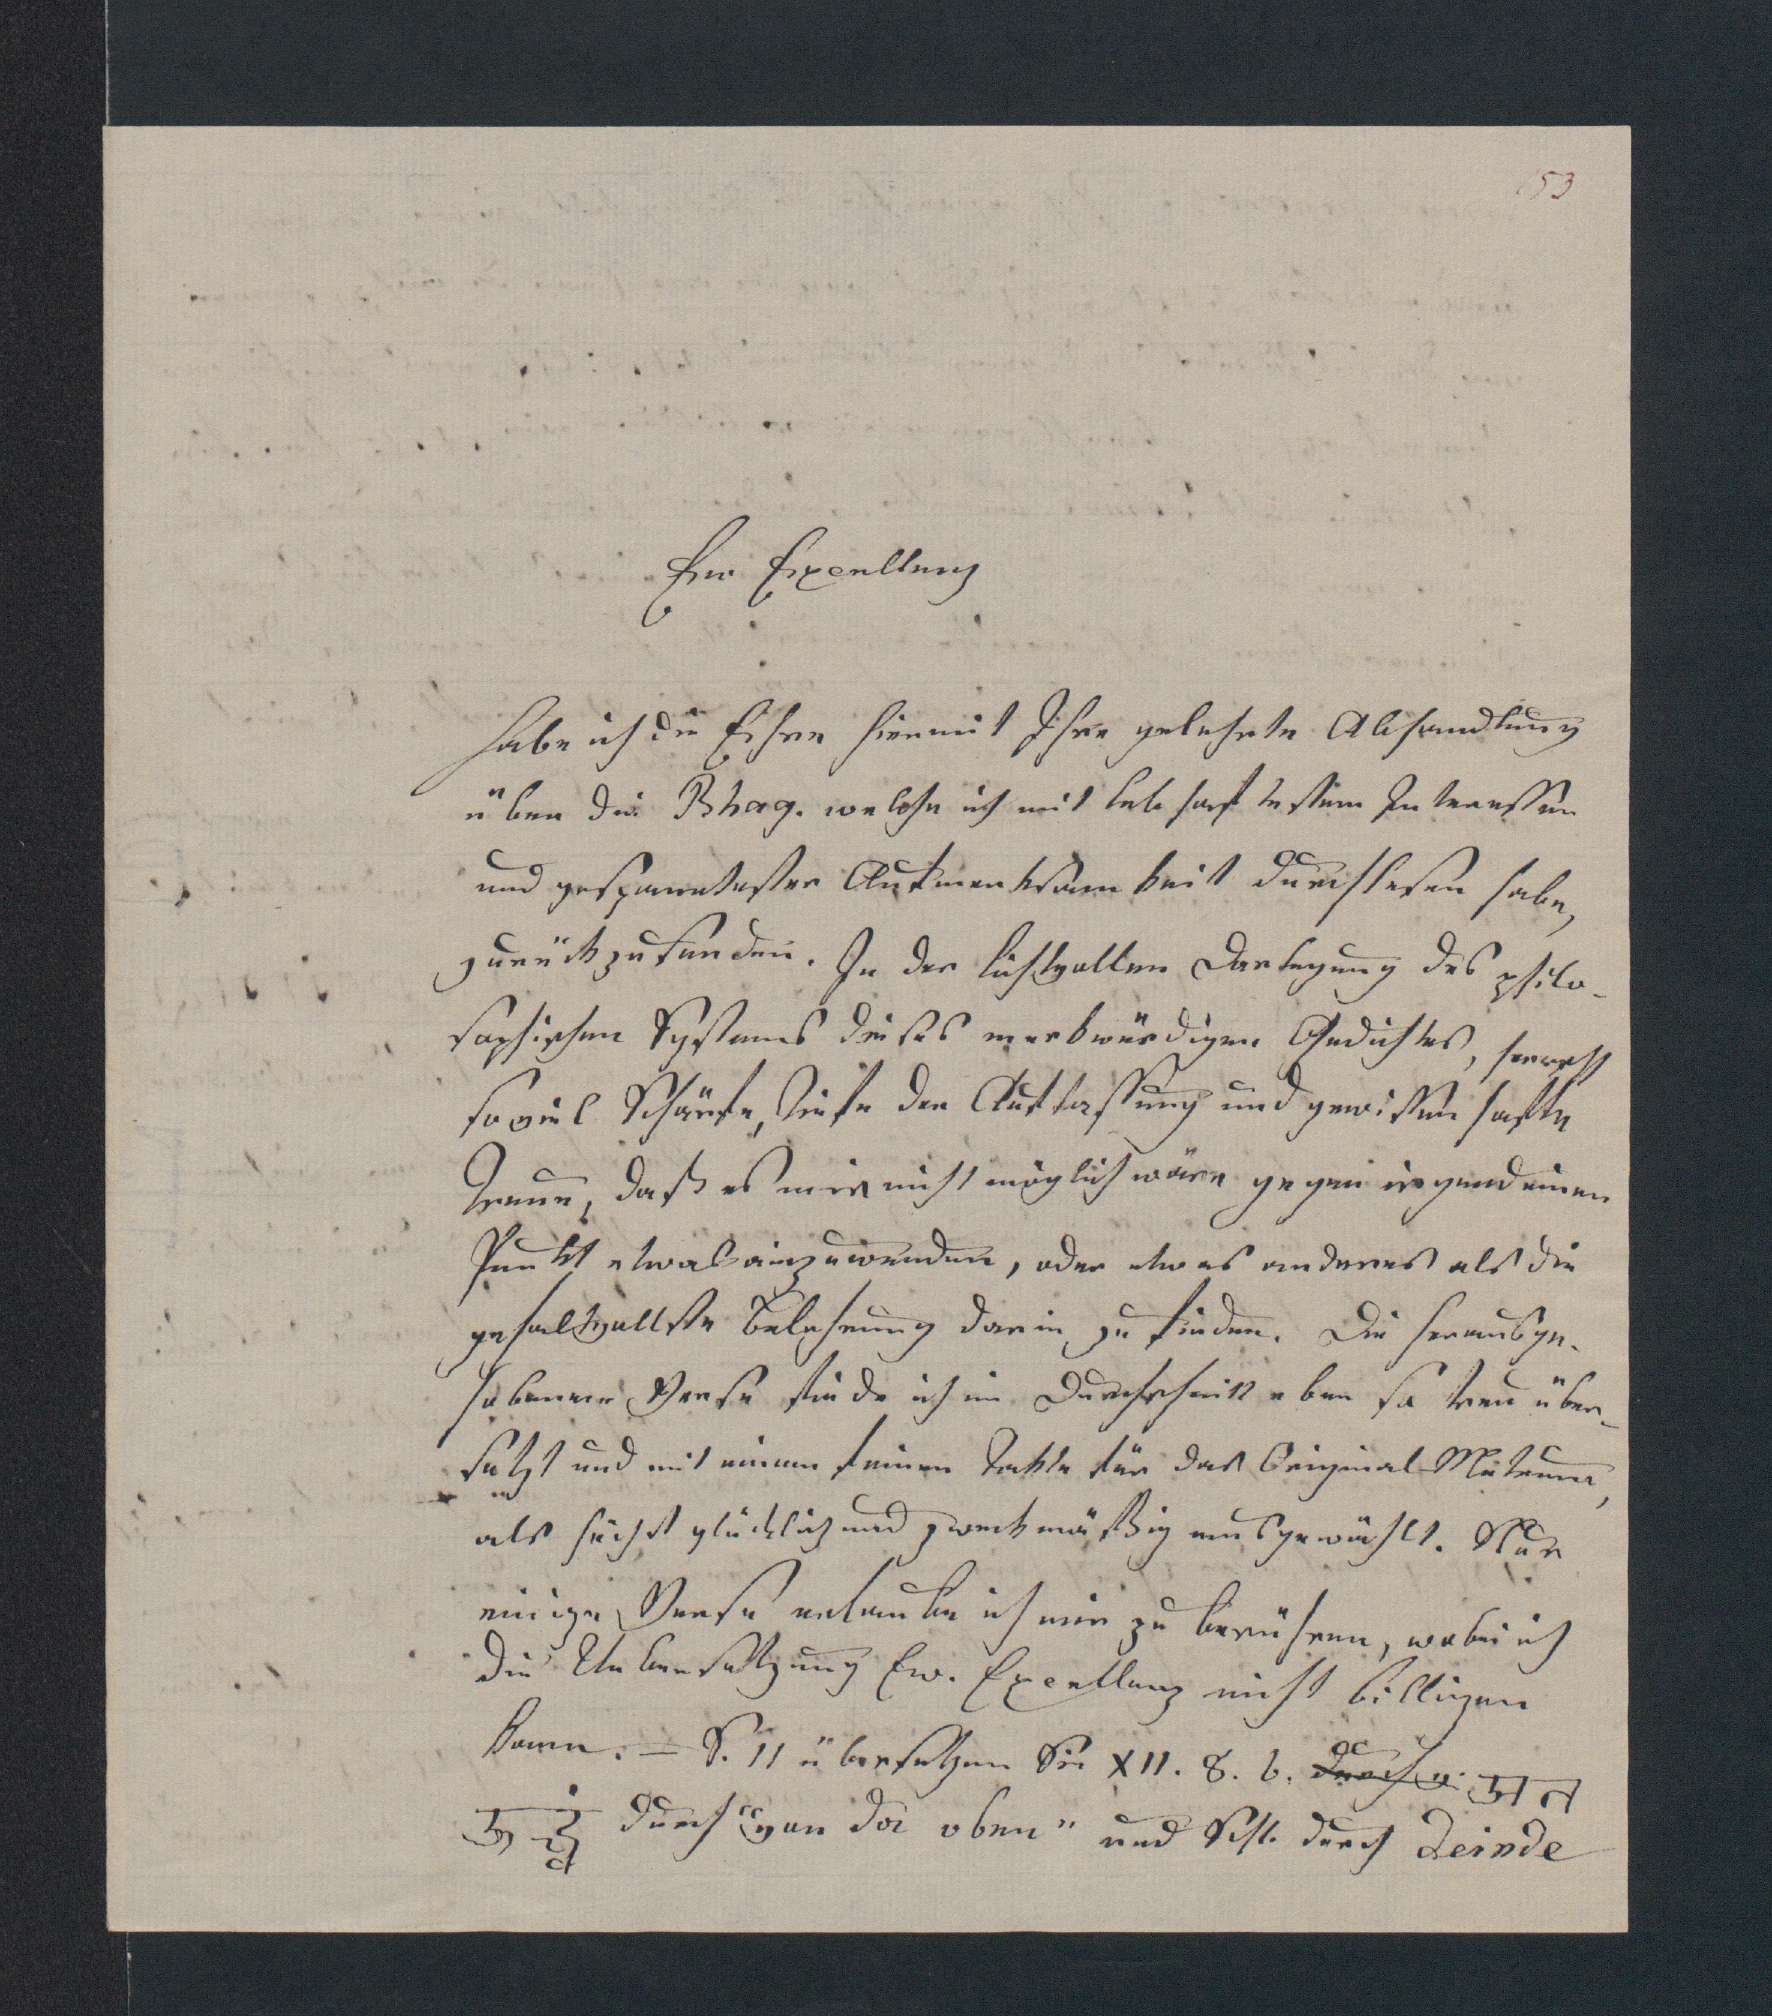 153
Ew Excellenz
habe ich die Ehre hiermit Ihre gelehrte Abhandlung
über die Bhag. welche ich mit lebhaftestem Interesse
und gespanntester Aufmerksamkeit durchlesen habe,
zurückzusenden. In der lichtvollen Darlegung des philo-
sophischen Systems dieses merkwürdigen Gedichtes, herrscht
soviel Schärfe, Tiefe der Auffassung und gewissenhafte
Treue, daß es mir nicht möglich wäre gegen irgend einen
Punkt etwas einzuwenden, oder etwas anderes als die
gehaltvollste Belehrung darin zu finden. Die herausge-
hobenen Verse finde ich im Durchschnitt eben so treu über-
setzt und mit einem feinen Takte für das Original-Metrum,
als höchst glücklich und zweckmäßig ausgewählt. Nur
einige Verse erlaube ich mir zu berühren, wobei ich
die Uebersetzung Ew. Excellenz nicht billigen
kann. – S. 11 übersetzen Sie XII. 8. b. durch अत
ऊर्द्ध्वं durch "von da oben" und Schl. durch deinde